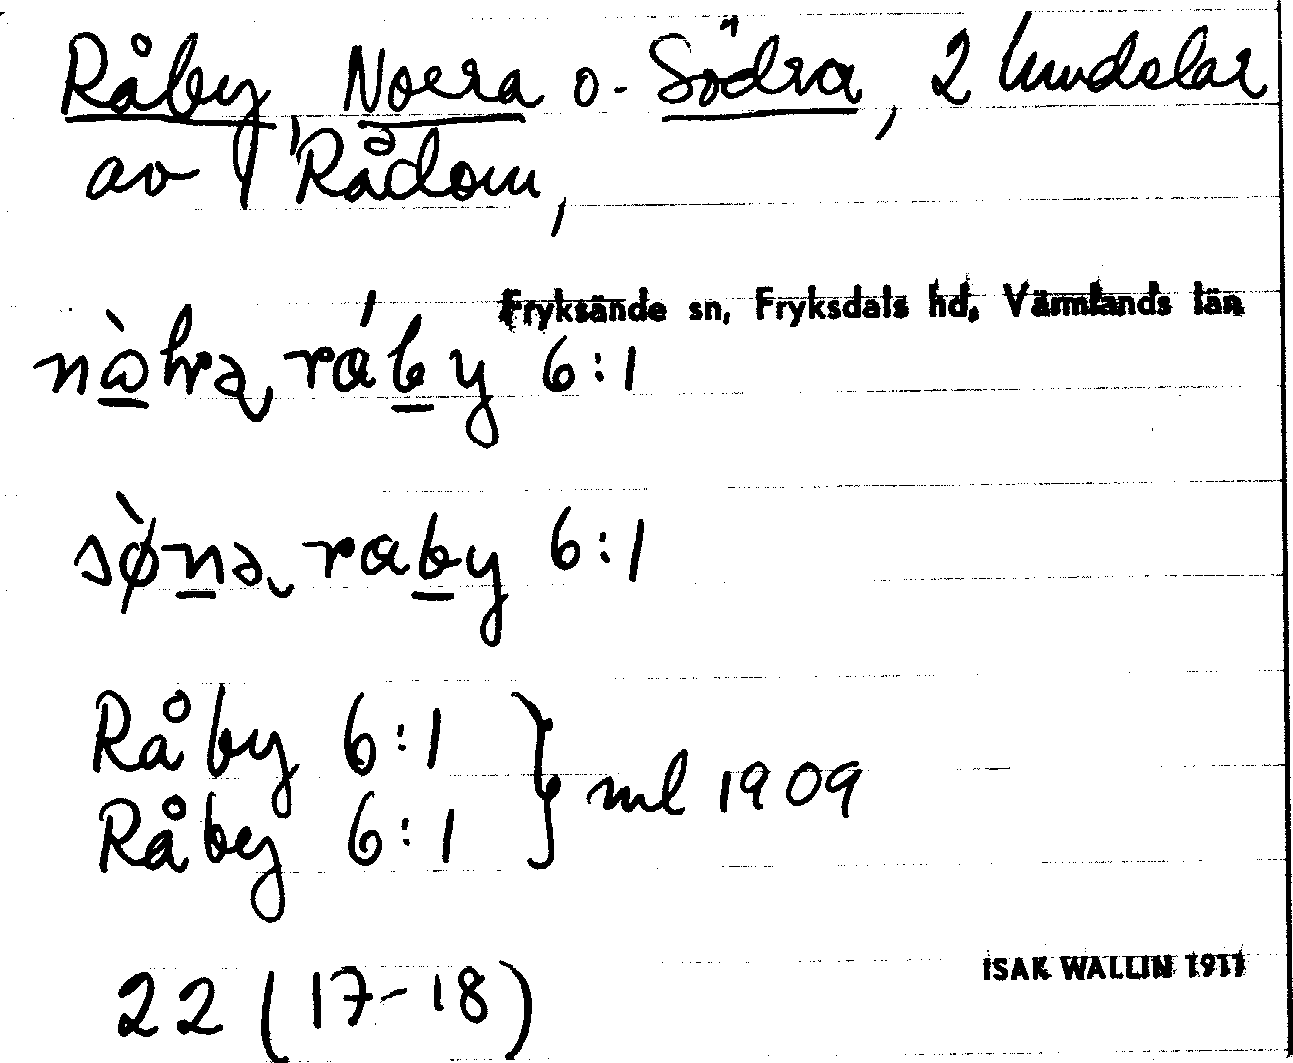 Råby Norra o. Södra, 2 hmdelar
av Rådom,
Fryksände sn, Fryksdals hd, Värmlands län
nὰhrə ráby 6:1
sø̀nə raby 6:1
Råby 6:1
Råby 6:1 } ml 1909
ISAK WALLIN 1911
22 (17-18)